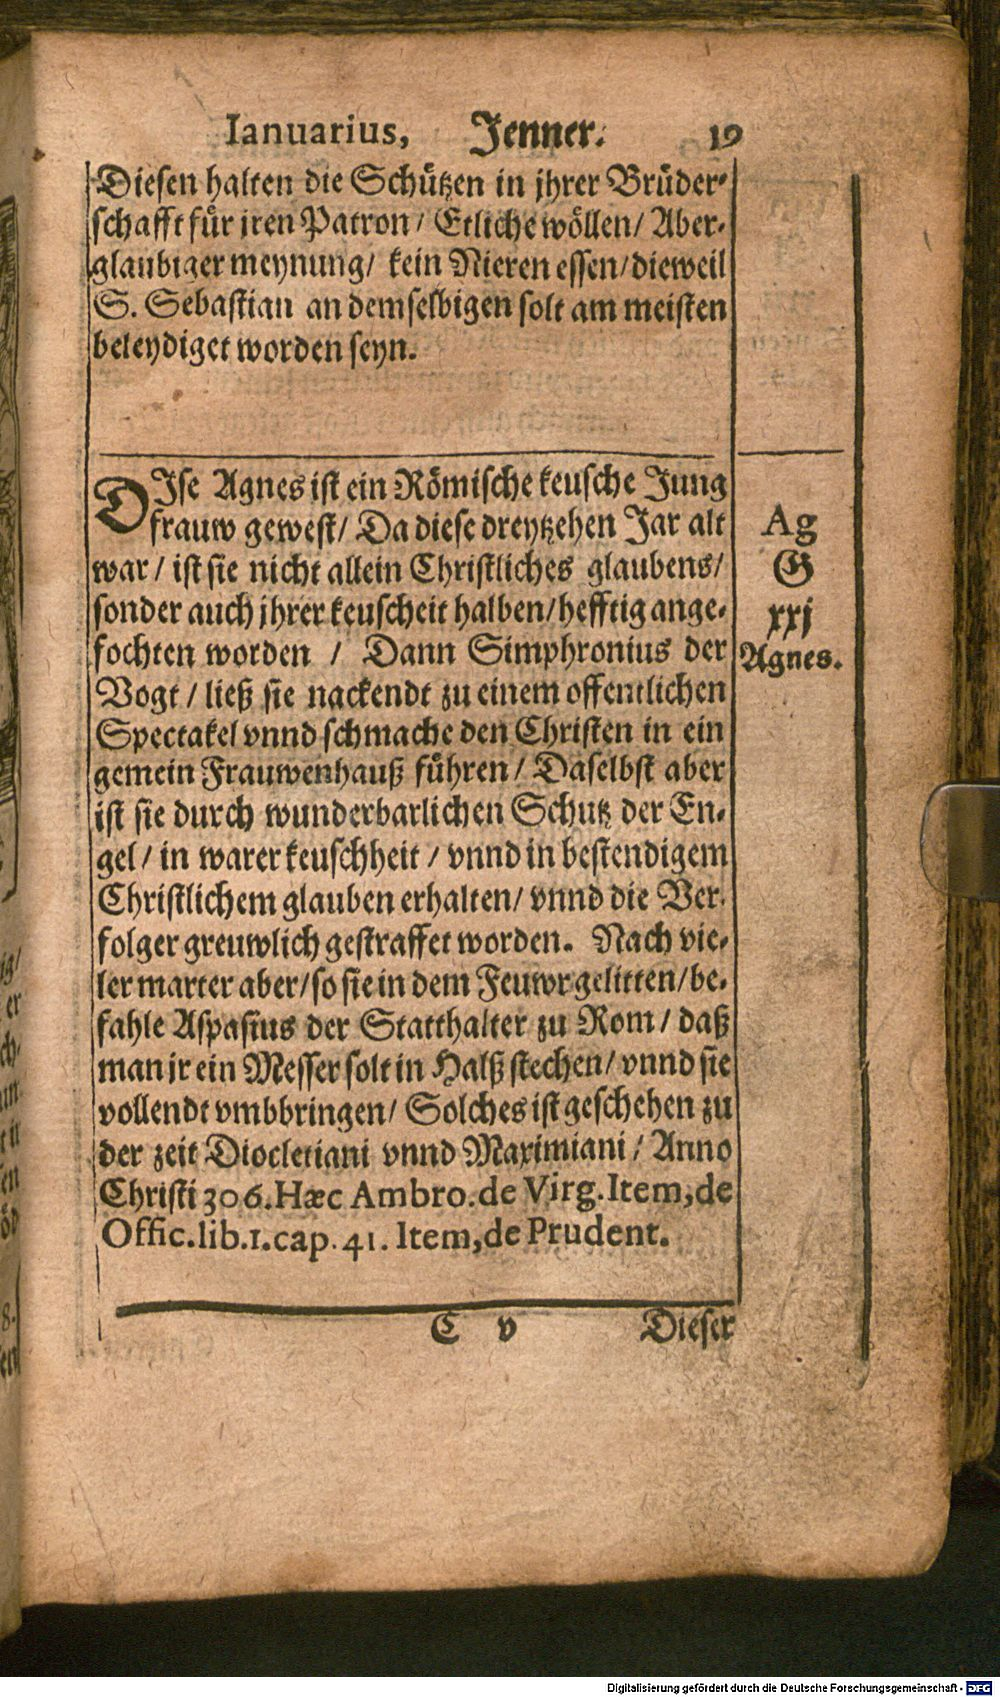 Ianuarius, Jenner. 19
Diesen halten die Schützen in jhrer Brüder-
schafft für jren Patron/ Etliche wöllen/ Aber-
glaubiger meynung/ kein Nieren essen/ dieweil
S. Sebastian an demselbigen solt am meisten
beleydiget worden seyn.
DIse Agnes ist ein Römische keusche Jung
frauw gewest/ Da diese dreytzehen Jar alt
war/ ist sie nicht allein Christliches glaubens/
sonder auch jhrer keuscheit halben/ hefftig ange-
fochten worden / Dann Simphronius der
Vogt/ ließ sie nackendt zu einem offentlichen
Spectakel vnnd schmache den Christen in ein
gemein Frauwenhauß führen/ Daselbst aber
ist sie durch wunderbarlichen Schutz der En-
gel/ in warer keuschheit / vnnd in bestendigem
Christlichem glauben erhalten/ vnnd die Ver-
folger greuwlich gestraffet worden. Nach vie-
ler marter aber/ so sie in dem Feuwr gelitten/ be-
fahle Aspasius der Statthalter zu Rom/ daß
man jr ein Messer solt in Halß stechen/ vnnd sie
vollendt vmbbringen/ Solches ist geschehen zu
der zeit Diocletiani vnnd Maximiani/ Anno
Christi 306. Hæc Ambro. de Virg. Item, de
Offic. lib. 1. cap. 41. Item, de Prudent.
Ag
G
xxj
Agnes.
C v Dieser
Digitalisierung gefördert durch die Deutsche Forschungsgemeinschaft - DFG